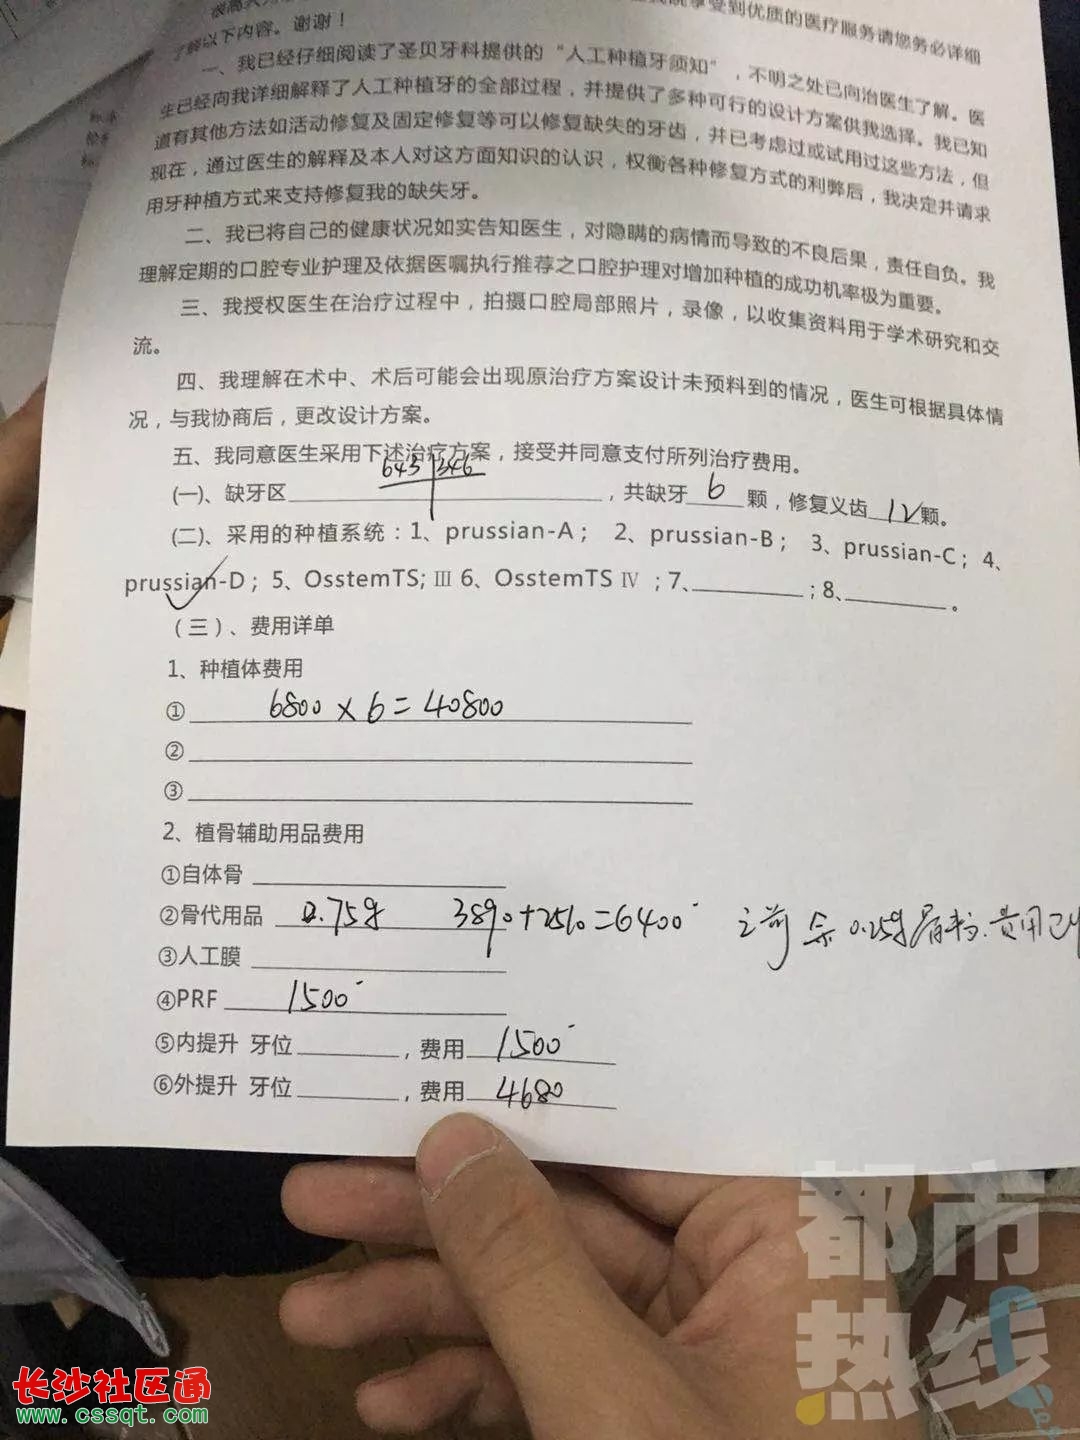 享受到优质的医疗服务请您务必详细
了解以下内容。谢谢！
一、我已经仔细阅读了圣贝牙科提供的“人工种植牙须知”，不明之处已向治医生了解。医
生已经向我详细解释了人工种植牙的全部过程，并提供了多种可行的设计方案供我选择。我已知
道有其他方法如活动修复及固定修复等可以修复缺失的牙齿，并已考虑过或试用过这些方法，但
现在，通过医生的解释及本人对这方面知识的认识，权衡各种修复方式的利弊后，我决定并请求
用牙种植方式来支持修复我的缺失牙。
二、我已将自己的健康状况如实告知医生，对隐瞒的病情而导致的不良后果，责任自负。我
理解定期的口腔专业护理及依据医嘱执行推荐之口腔护理对增加种植的成功机率极为重要。
三、我授权医生在治疗过程中，拍摄口腔局部照片，录像，以收集资料用于学术研究和交
流。
四、我理解在术中、术后可能会出现原治疗方案设计未预料到的情况，医生可根据具体情
况，与我协商后，更改设计方案。
五、我同意医生采用下述治疗方案，接受并同意支付所列治疗费用。
(一)、缺牙区 643 346 ，共缺牙 6 颗，修复义齿 12 颗。
(二)、采用的种植系统：1、prussian-A； 2、prussian-B； 3、prussian-C；4、
prussian-D；5、OsstemTS; Ⅲ 6、OsstemTS Ⅳ ；7、 ；8、 。
（三）、费用详单
1、种植体费用
① 6800 × 6 = 40800
②
③
2、植骨辅助用品费用
①自体骨
②骨代用品 0.75g 3890+2510=6400 之前余0.25g骨粉.费用已
③人工膜
④PRF 1500
⑤内提升 牙位 ，费用 1500
⑥外提升 牙位 ，费用 4680
都市
热线
长沙社区通
www.cssqt.com